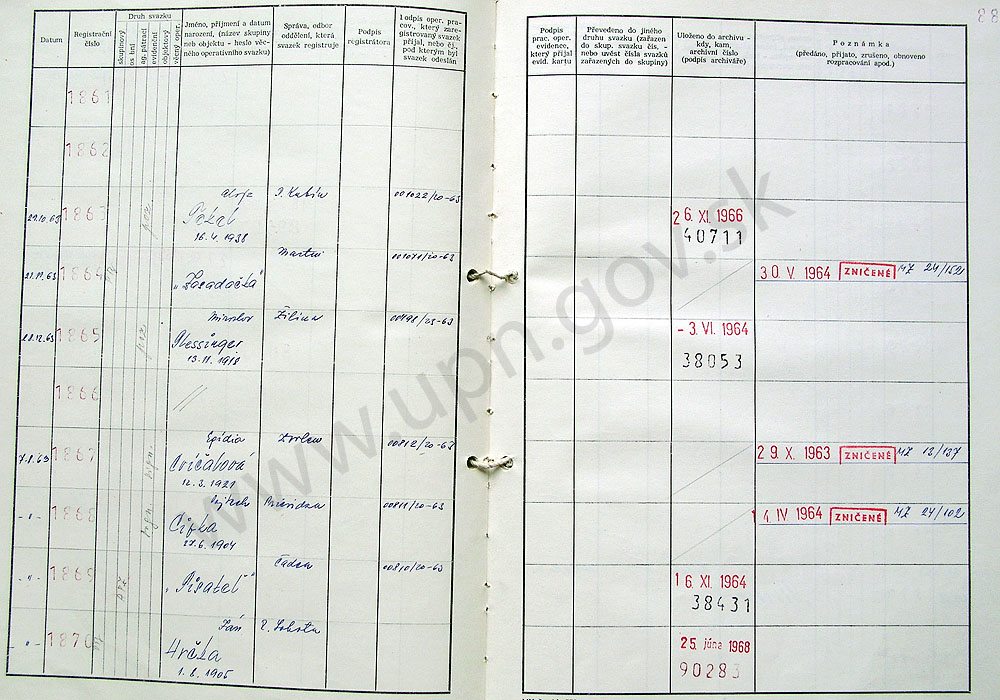 Datum
Registrační číslo
Druh svazku
skupinový
osobní
ag. pátrací
evidenční
objektový
věcný oper.
Jméno, příjmení a datum
narození, (název skupiny
neb objektu - heslo věc-
ného operativního svazku)
Správa, odbor
oddělení, která
svazek registruje
Podpis
registrátora
Podpis oper. prac-
cov., který zare-
gistrovaný svazek
přijal, nebo čj.,
pod kterým byl
svazek odeslán
Podpis
prac. oper.
evidence,
který přijal
evid. kartu
Převedeno do jiného
druhu svazku (zařazen
do skup. svazku čís. -
nebo uvést čísla svazků
zařazených do skupiny)
Uloženo do archivu -
kdy, kam,
archivní číslo
(podpis archiváře)
Poznámka
(předáno, přijato, zrušeno, obnoveno
rozpracování apod.)
83
1861
1862
29.10.63 1863 Pažák 16.4.1938 001022/20-63
26. XI. 1966
40711
1864 "Záradačka" Martin 001071/20-63
30. V. 1964 ZNIČENÉ MZ 24/152
20.12.63 1865 Miroslav Plessinger 13.11.1918 Žilina
- 3. VI. 1964
38053
1866 //
1867 Egidia Cvičalová 12.3.1921 Zvolen 00812/20-63
29. X. 1963 ZNIČENÉ MZ 12/137
- " - 1868 Cifka 27.6.1904 Prievidza 00811/20-63
14. IV 1964 ZNIČENÉ MZ 24/102
- " - 1869 "Pisateľ" Čadca 00810/20-63
16. XI. 1964
38431
" - 1870 Ján Hrčka 1.8.1905 R. Sobota
25. júna 1968
90283
www.upn.gov.sk